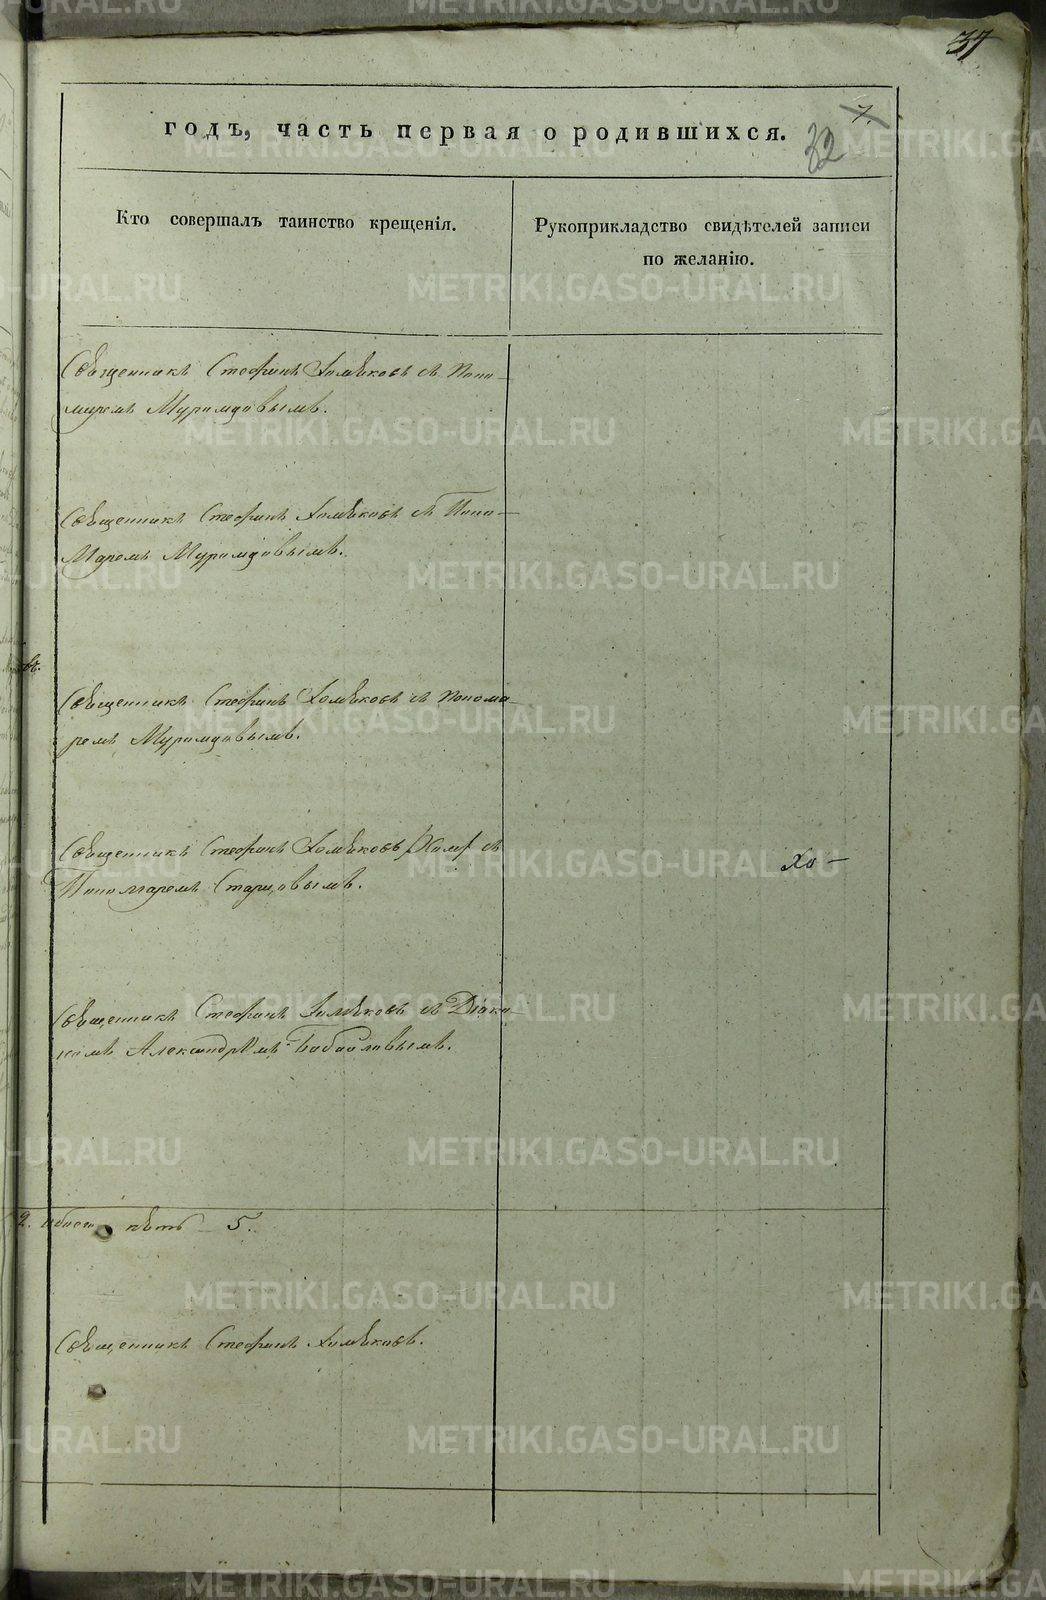 37
7.
32
годъ, часть первая о родившихся.
Кто совершалъ таинство крещенія.
Рукоприкладство свидѣтелей записи
по желанію.
Священникъ Стефанъ Хомяковъ съ Поно-
маремъ
Священникъ Стефанъ Хомяковъ съ Поно-
Маремъ
Священникъ Стефанъ Хомяковъ съ Понома-
ремъ
Священникъ Стефанъ Хомяковъ съ
Пономаремъ Старцовымъ.
Хо-
Священникъ Стефанъ Хомяковъ съ Діако-
номъ Александромъ
2. обоего 5.
Священникъ Стефанъ Хомяковъ.
METRIKI.GASO-URAL.RU